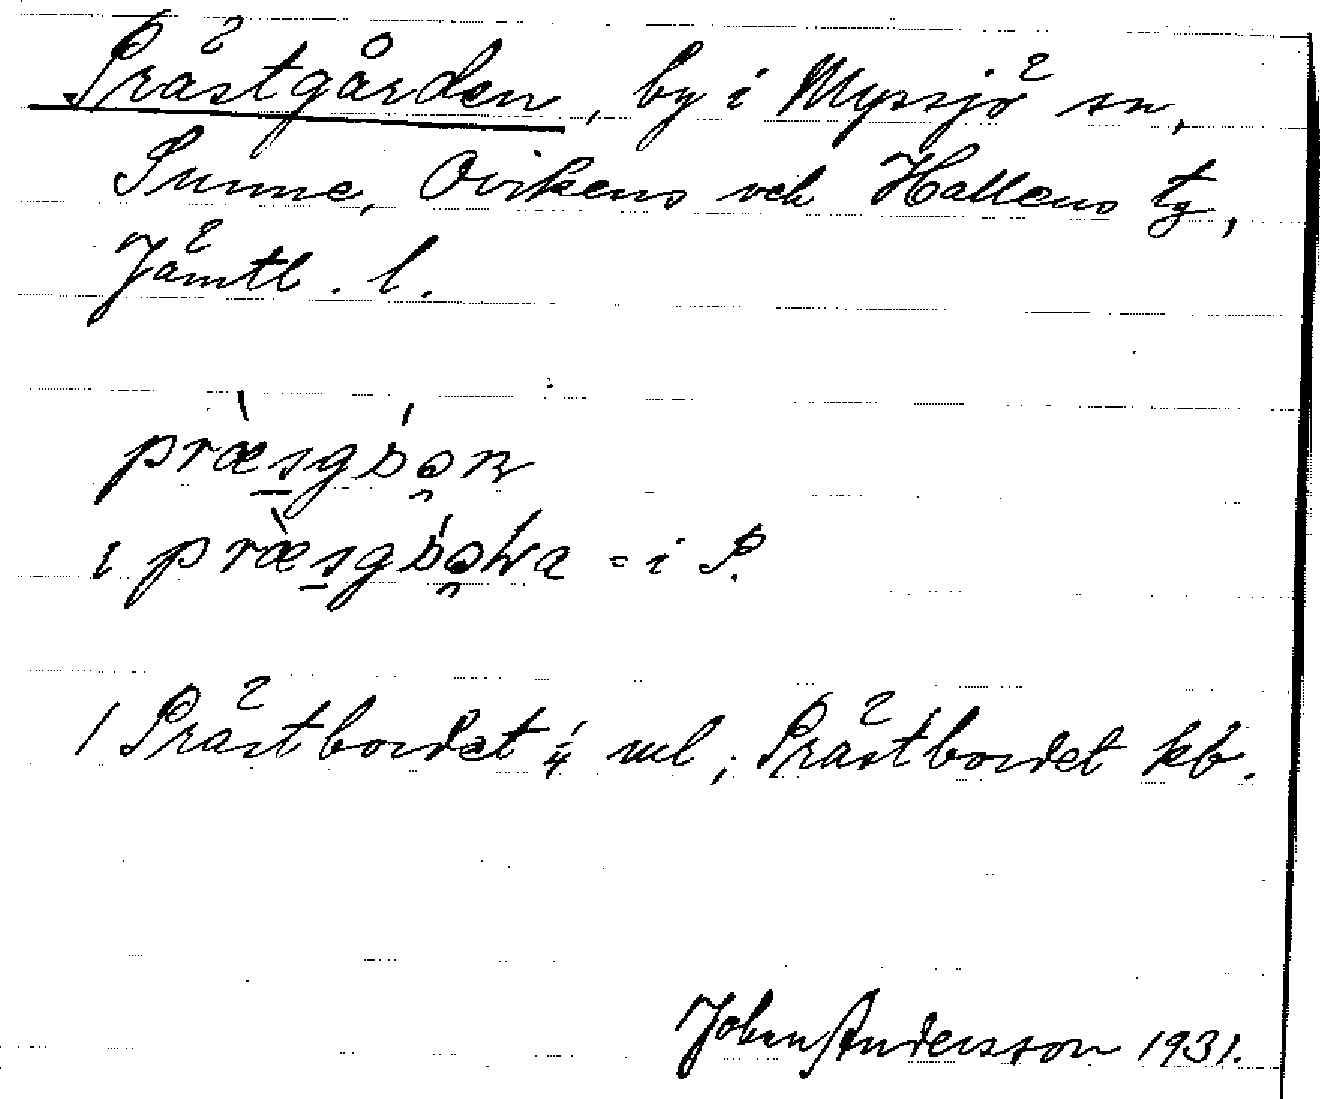 Prästgården, by i Myssjö sn,
Sunne, Ovikens och Hallens tg,
Jämtl. l.
i = i P.
1 Prästbordet 1/4 ml; Prästbordet kb.
Johan Andersson 1931.